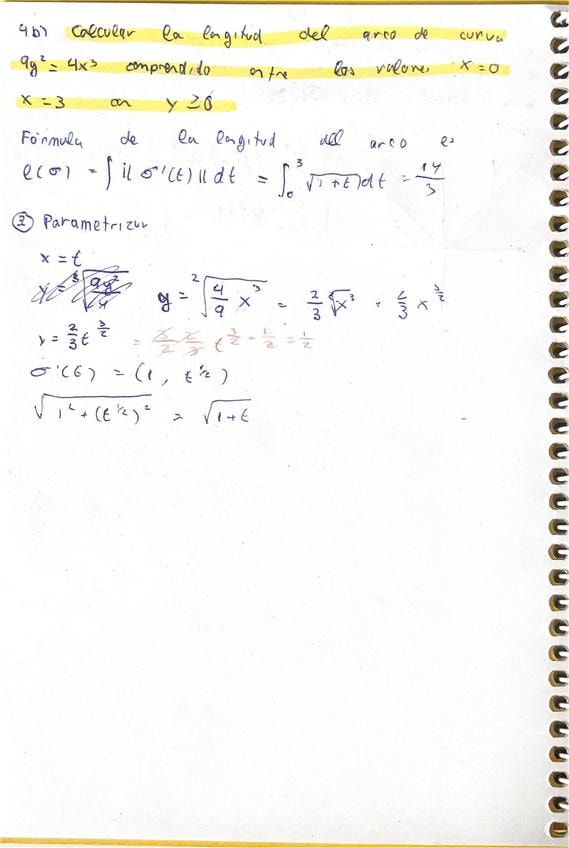 4b) Calcular la longitud del arco de curva
9y² = 4x³ comprendido entre los valores x=0
x = 3 con y ≥ 0
Fórmula de la longitud del arco es
l(σ) = ∫ || σ'(t) || dt = ∫₀³ √(1+t) dt = 14/3
① Parametrizar
x = t
y = ²√(4/9 x³) = 2/3 √x³ = 2/3 x^(3/2)
y = 2/3 t^(3/2) = 3/2 2/3 t^(3/2 - 1/2 = 1/2)
σ'(t) = (1, t^(1/2))
√(1² + (t^(1/2))²) = √(1+t)